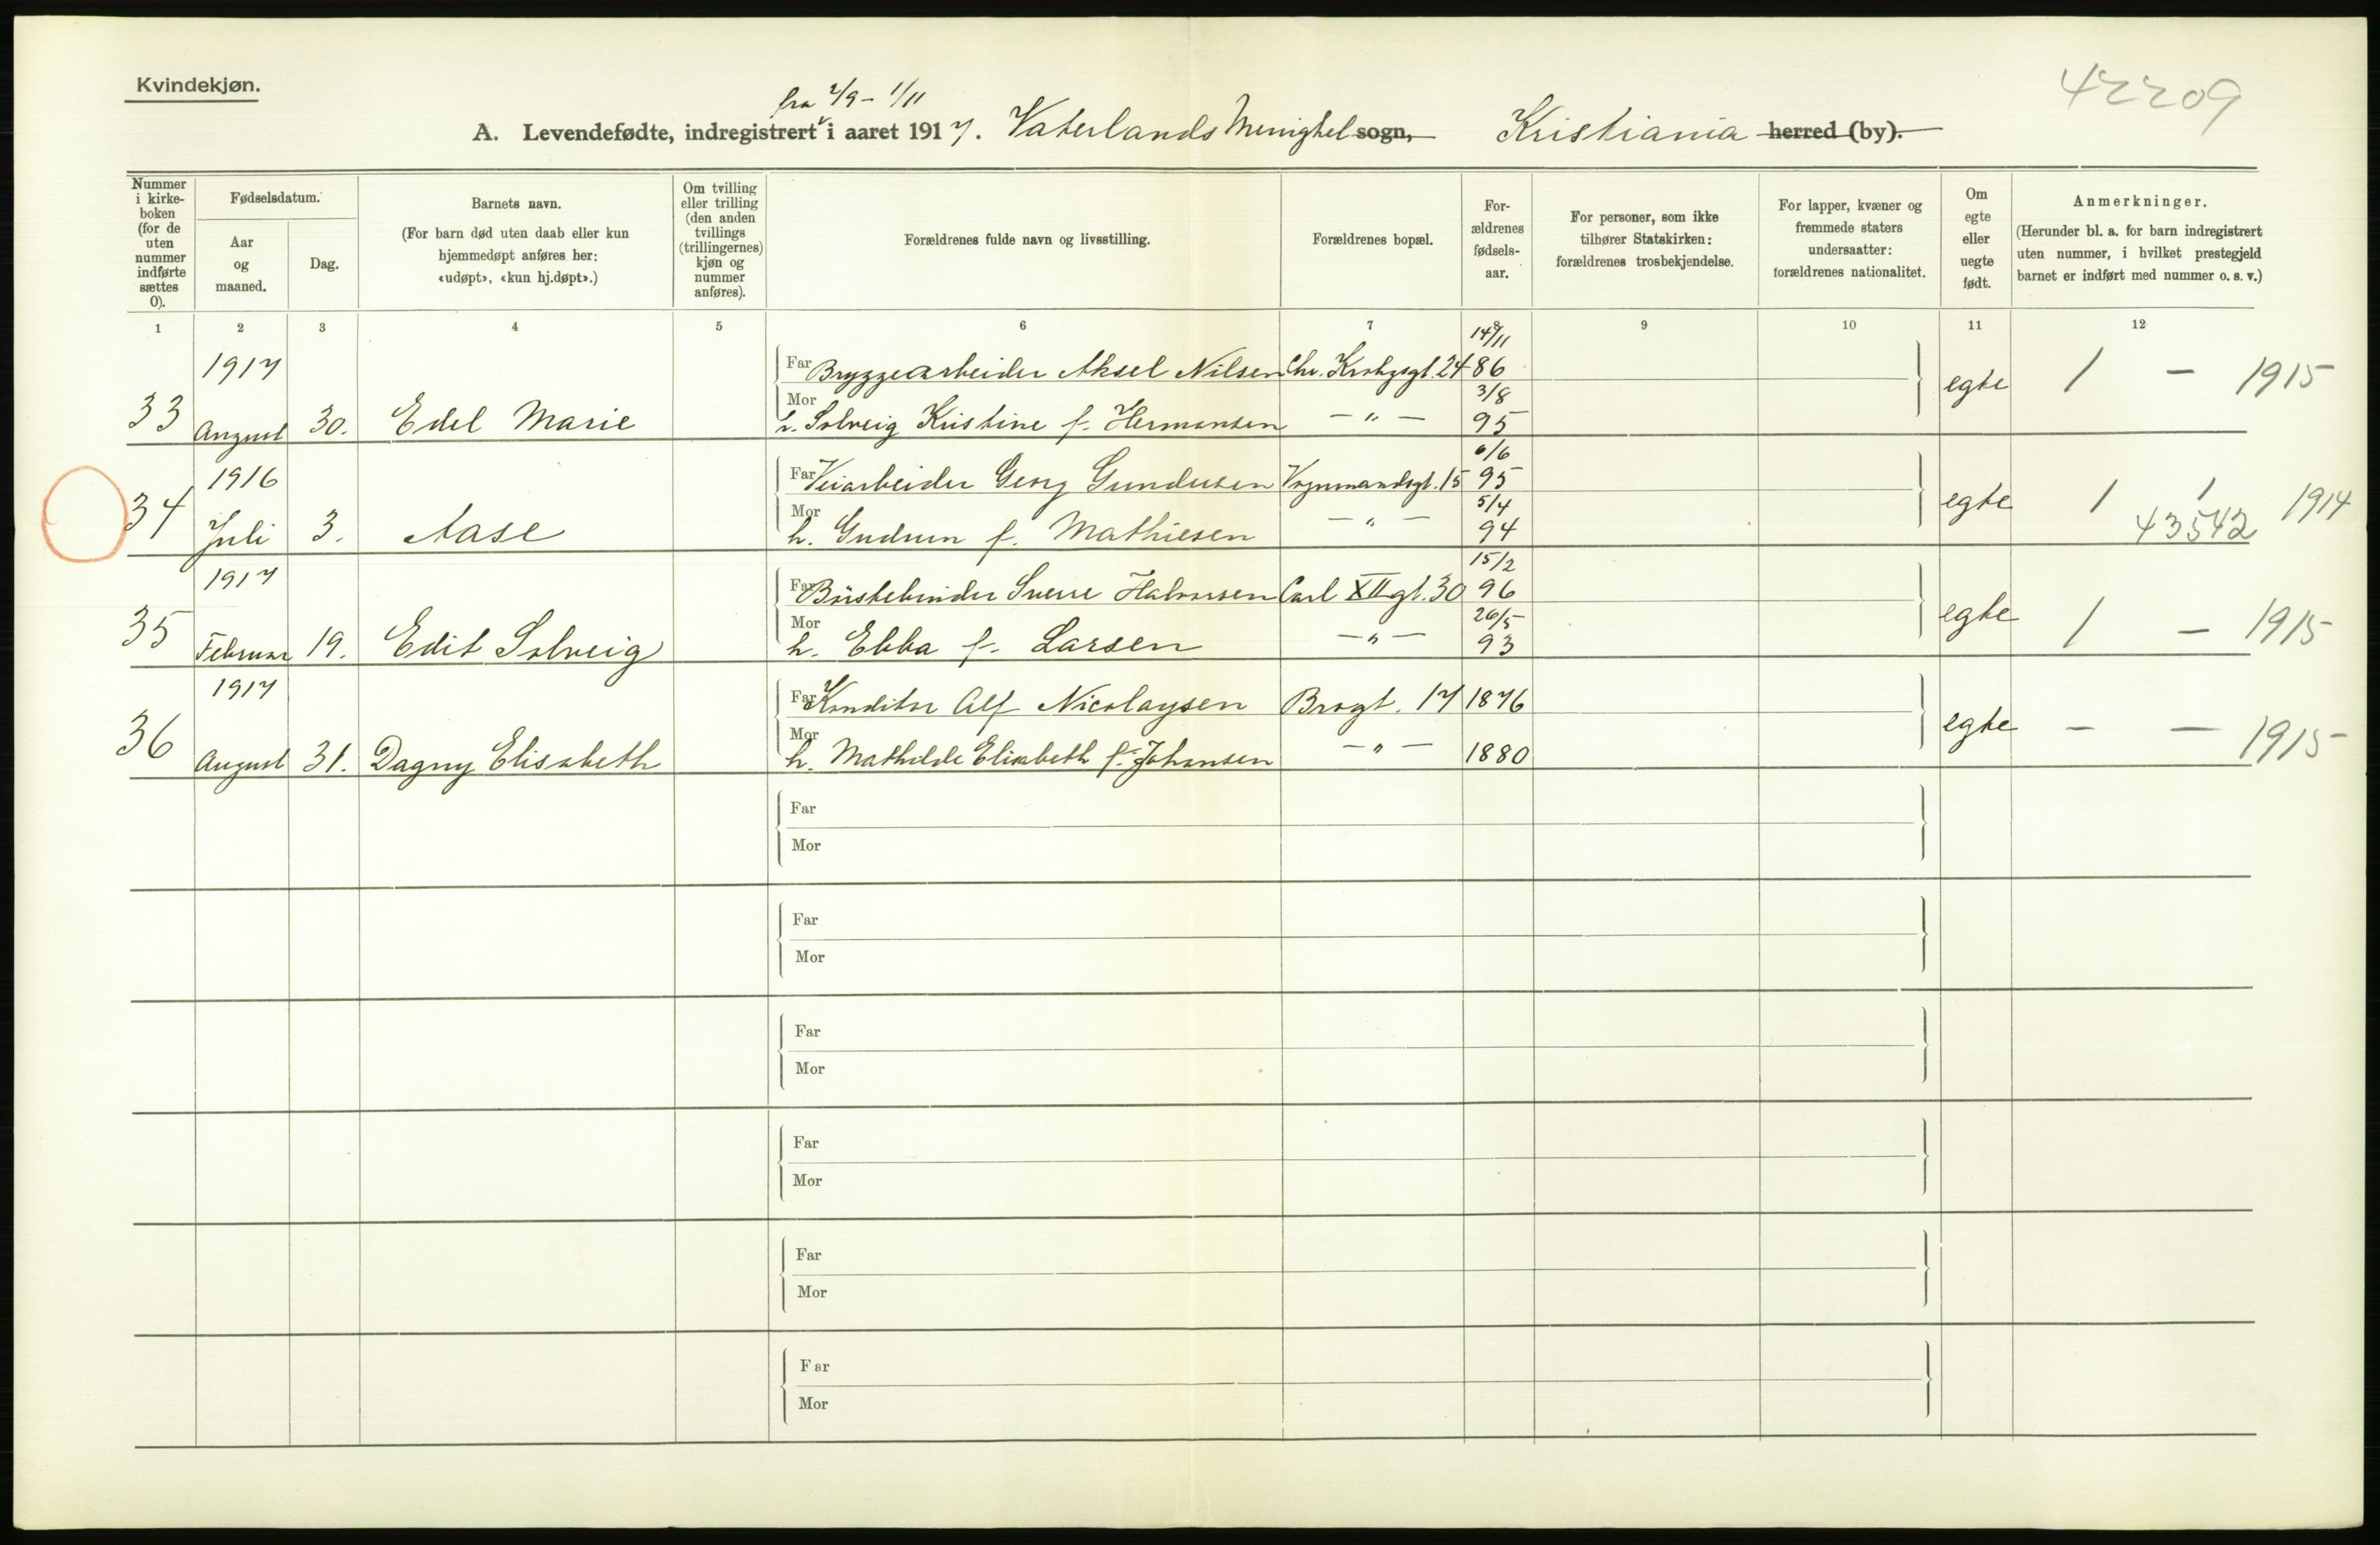 Kvindekjøn.
42209
fra 2/9 - 1/11
A. Levendefødte, indregistrert i aaret 1917. Vaterlands Menighet sogn, Kristiania herred (by).
Nummer i kirke-boken (for de uten nummer indførte sættes 0).
Fødselsdatum.
Aar og maaned.
Dag.
Barnets navn.
(For barn død uten daab eller kun hjemmedøpt anføres her: «udøpt», «kun hj.døpt».)
Om tvilling eller trilling (den anden tvillings (trillingernes) kjøn og nummer anføres).
Forældrenes fulde navn og livsstilling.
Forældrenes bopæl.
For-ældrenes fødsels-aar.
For personer, som ikke tilhører Statskirken: forældrenes trosbekjendelse.
For lapper, kvæner og fremmede staters undersaatter: forældrenes nationalitet.
Om egte eller uegte født.
Anmerkninger.
(Herunder bl. a. for barn indregistrert uten nummer, i hvilket prestegjeld barnet er indført med nummer o. s. v.)
1 2 3 4 5 6 7 8 9 10 11 12
14/11
1917 Far Bryggearbeider Aksel Nilsen Chr. Krohgsgt. 24 86
3/8
33 August 30. Edel Marie Mor h. Solveig Kristine f. Hermansen — " — 95 egte 1 — 1915
6/6
1916 Far Veiarbeider Georg Gundersen Vognmandsgt. 15 95
5/4
34 Juli 3. Aase Mor h. Gudrun f. Mathiesen — " — 94 egte 1 1 1914
43542
15/2
1917 Far Børstebinder Sverre Halvorsen Carl XII gt. 30 96
26/5
35 Februar 19. Edit Solveig Mor h. Ebba f. Larsen — " — 93 egte 1 — 1915
1917 Far Konditor Alf Nicolaysen Brogt. 17 1876
36 August 31. Dagny Elisabeth Mor h. Mathilde Elisabeth f. Johansen — " — 1880 egte — — 1915
Far
Mor
Far
Mor
Far
Mor
Far
Mor
Far
Mor
Far
Mor